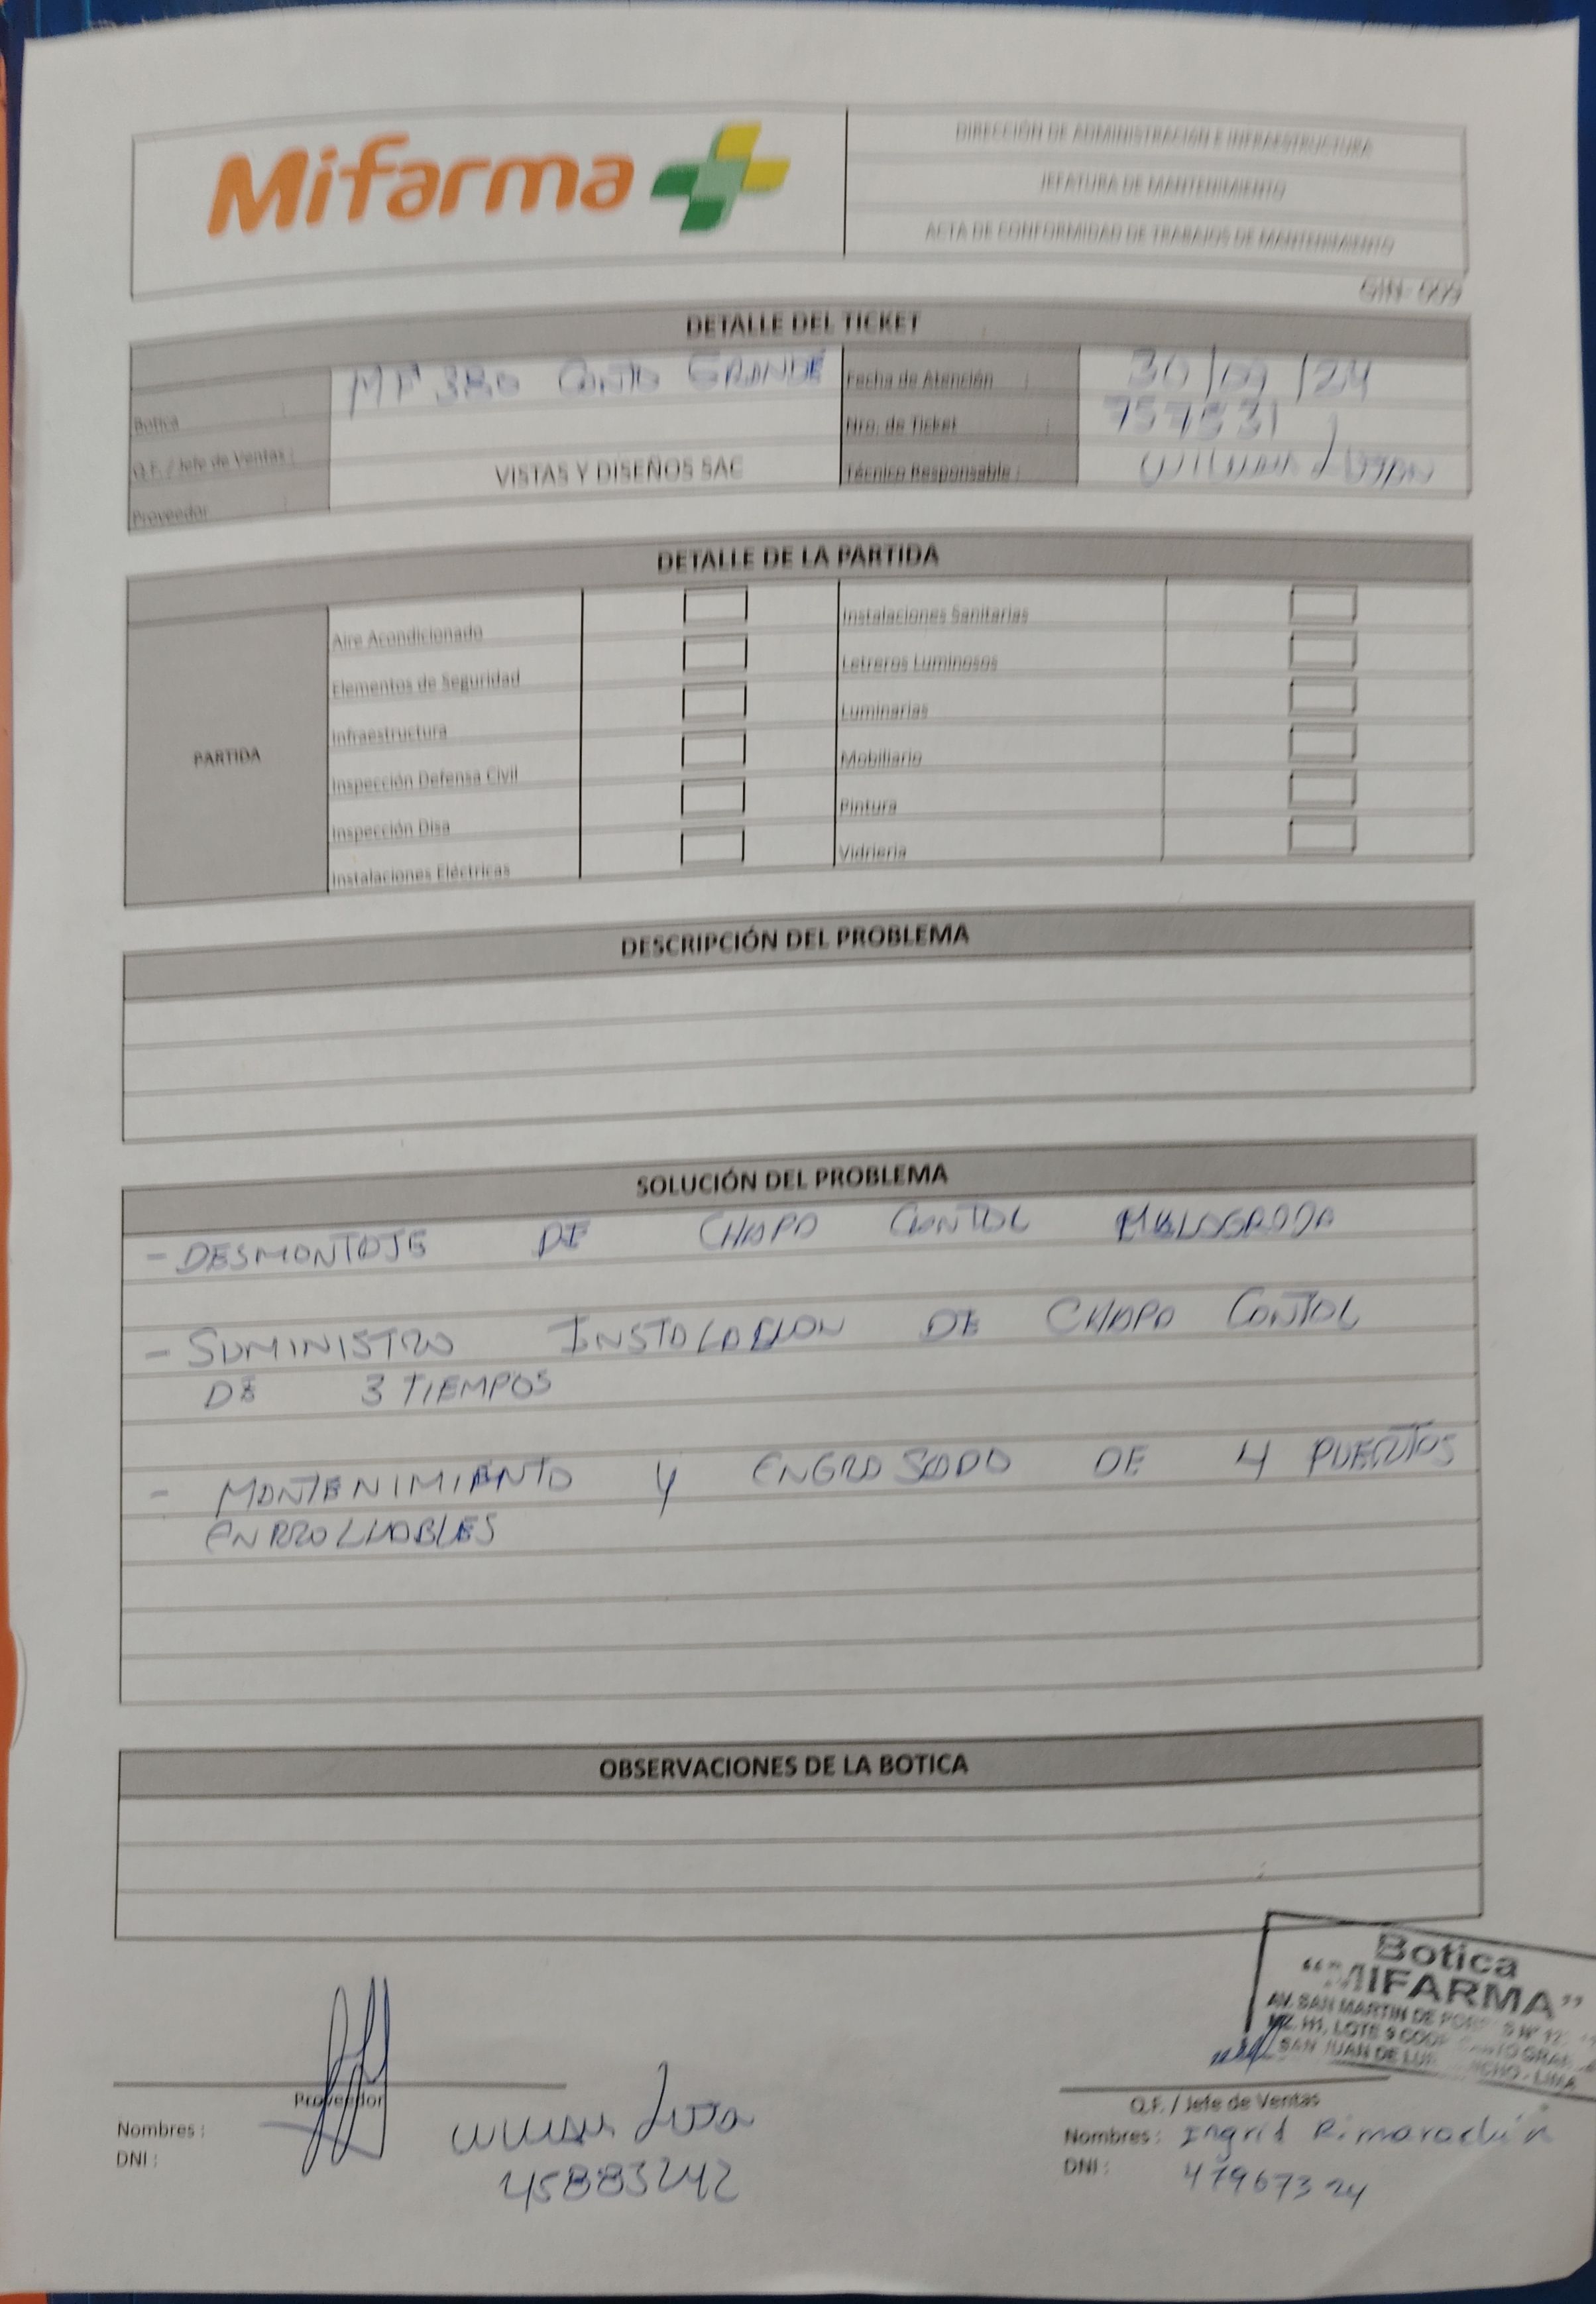 Mifarma
DIRECCIÓN DE ADMINISTRACIÓN E INFRAESTRUCTURA
JEFATURA DE MANTENIMIENTO
ACTA DE CONFORMIDAD DE TRABAJOS DE MANTENIMIENTO
GIN-009
DETALLE DEL TICKET
Botica : MF 380 CANTO GRANDE
Fecha de Atención : 30/09/24
Q.F. / Jefe de Ventas :
Nro. de Ticket : 757531
Proveedor : VISTAS Y DISEÑOS SAC
Técnico Responsable :
DETALLE DE LA PARTIDA
PARTIDA
Aire Acondicionado
Instalaciones Sanitarias
Elementos de Seguridad
Letreros Luminosos
Infraestructura
Luminarias
Inspección Defensa Civil
Mobiliario
Inspección Disa
Pintura
Instalaciones Eléctricas
Vidrieria
DESCRIPCIÓN DEL PROBLEMA
SOLUCIÓN DEL PROBLEMA
- DESMONTAJE DE CHAPA CANTOL MALOGRADA
- SUMINISTRO INSTALACION DE CHAPA CANTOL
DE 3 TIEMPOS
- MANTENIMIENTO Y ENGRASADO DE 4 PUERTAS
ENRROLLABLES
OBSERVACIONES DE LA BOTICA
Botica
"MIFARMA"
AV. SAN MARTIN DE
MZ. H1, LOTE 9 COOP. CANTO GRANDE
SAN JUAN DE LURIGANCHO - LIMA
Proveedor
Nombres :
DNI : 45883242
Q.F. / Jefe de Ventas
Nombres : Ingrid Rimarachín
DNI : 47967324